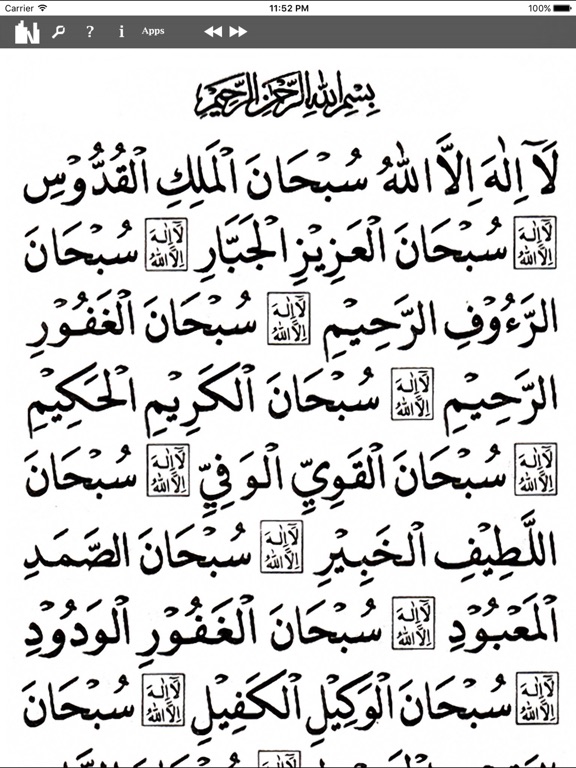 Carrier 11:52 PM 100%
? i Apps
بِسْمِ اللهِ الرَّحْمٰنِ الرَّحِيْمِ
لَآ اِلٰهَ اِلَّا اللهُ سُبْحَانَ الْمَلِكِ الْقُدُّوْسِ
لَآ اِلٰهَ اِلَّا اللهُ سُبْحَانَ الْعَزِيْزِ الْجَبَّارِ لَآ اِلٰهَ اِلَّا اللهُ سُبْحَانَ
الرَّءُوْفِ الرَّحِيْمِ لَآ اِلٰهَ اِلَّا اللهُ سُبْحَانَ الْغَفُوْرِ
الرَّحِيْمِ لَآ اِلٰهَ اِلَّا اللهُ سُبْحَانَ الْكَرِيْمِ الْحَكِيْمِ
لَآ اِلٰهَ اِلَّا اللهُ سُبْحَانَ الْقَوِيِّ الْوَفِيِّ لَآ اِلٰهَ اِلَّا اللهُ سُبْحَانَ
اللَّطِيْفِ الْخَبِيْرِ لَآ اِلٰهَ اِلَّا اللهُ سُبْحَانَ الصَّمَدِ
الْمَعْبُوْدِ لَآ اِلٰهَ اِلَّا اللهُ سُبْحَانَ الْغَفُوْرِ الْوَدُوْدِ
لَآ اِلٰهَ اِلَّا اللهُ سُبْحَانَ الْوَكِيْلِ الْكَفِيْلِ لَآ اِلٰهَ اِلَّا اللهُ سُبْحَانَ